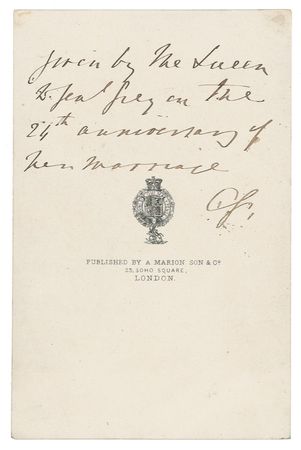 given by the Queen
to Genl Grey on the
24th anniversary of
her marriage
CG.
PUBLISHED BY A MARION SON & Co
23, SOHO SQUARE,
LONDON.